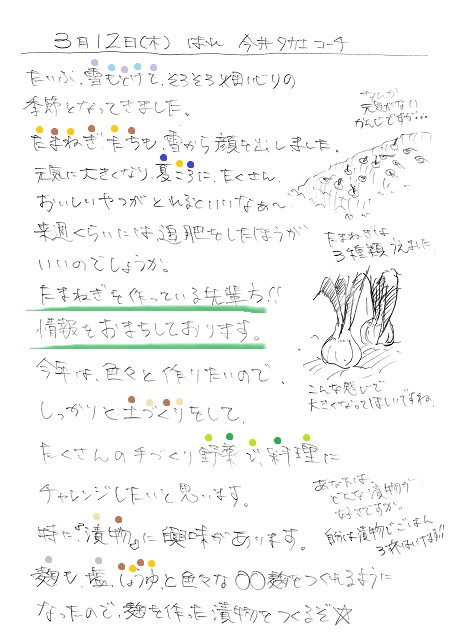 3月12日(木) はれ 今井タカエコーチ
だいぶ、雪もとけて、そろそろ畑いじりの
季節となってきました。
たまねぎたちも、雪から顔を出しました。
元気に大きくなり、夏ころに、たくさん
おいしいやつがとれるといいなぁ〜
来週くらいには、追肥をしたほうが
いいのでしょうか。
たまねぎを作っている先輩方!!
情報をおまちしております。
今年は、色々と作りたいので、
しっかりと土づくりをして、
たくさんの手づくり野菜で、料理に
チャレンジしたいと思います。
特に『漬物』に興味があります。
麹も、塩、しょうゆ、と色々な〇〇麹をつくれるように
なったので、麹を作った漬物をつくるぞ☆
なんか
元気がない
かんじですが…
たまねぎは
3種類うえました
こんな感じで
大きくなってほしいですね。
あなたは、
どんな漬物が
好きですか。
自分は漬物でごはん
3杯はいけます!!